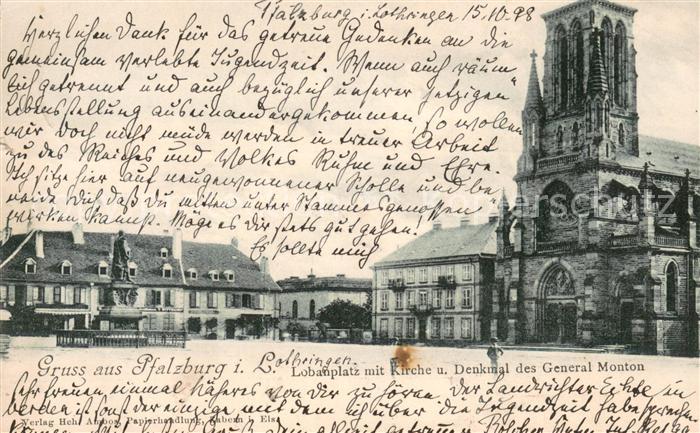 Pfalzburg i. Lothringen 15.10.98
Herzlichen Dank für das getreue Gedenken an die
gemeinsam verlebte Jugendzeit. Wenn auch räum-
lich getrennt und auch bezüglich unserer jetzigen
Lebensstellung auseinandergekommen, so wollen
wir doch nicht müde werden in treuer Arbeit
zu des Reiches und Volkes Ruhm und Ehre.
Ich sitze hier auf neugewonnener Scholle und be-
neide Dich daß Du mitten unter Stammesgenossen
wirken kannst. Möge es Dir stets gut gehen.
Es sollte mich
Gruss aus Pfalzburg i. Lothringen.
Lobauplatz mit Kirche u. Denkmal des General Mouton
sehr freuen einmal Näheres von Dir zu hören. Der Landrichter in
werden ist so der einzige mit dem ich über die Jugendzeit habe sprechen
Verlag Hch. Ambos, Papierhandlung, Zabern i. Els.